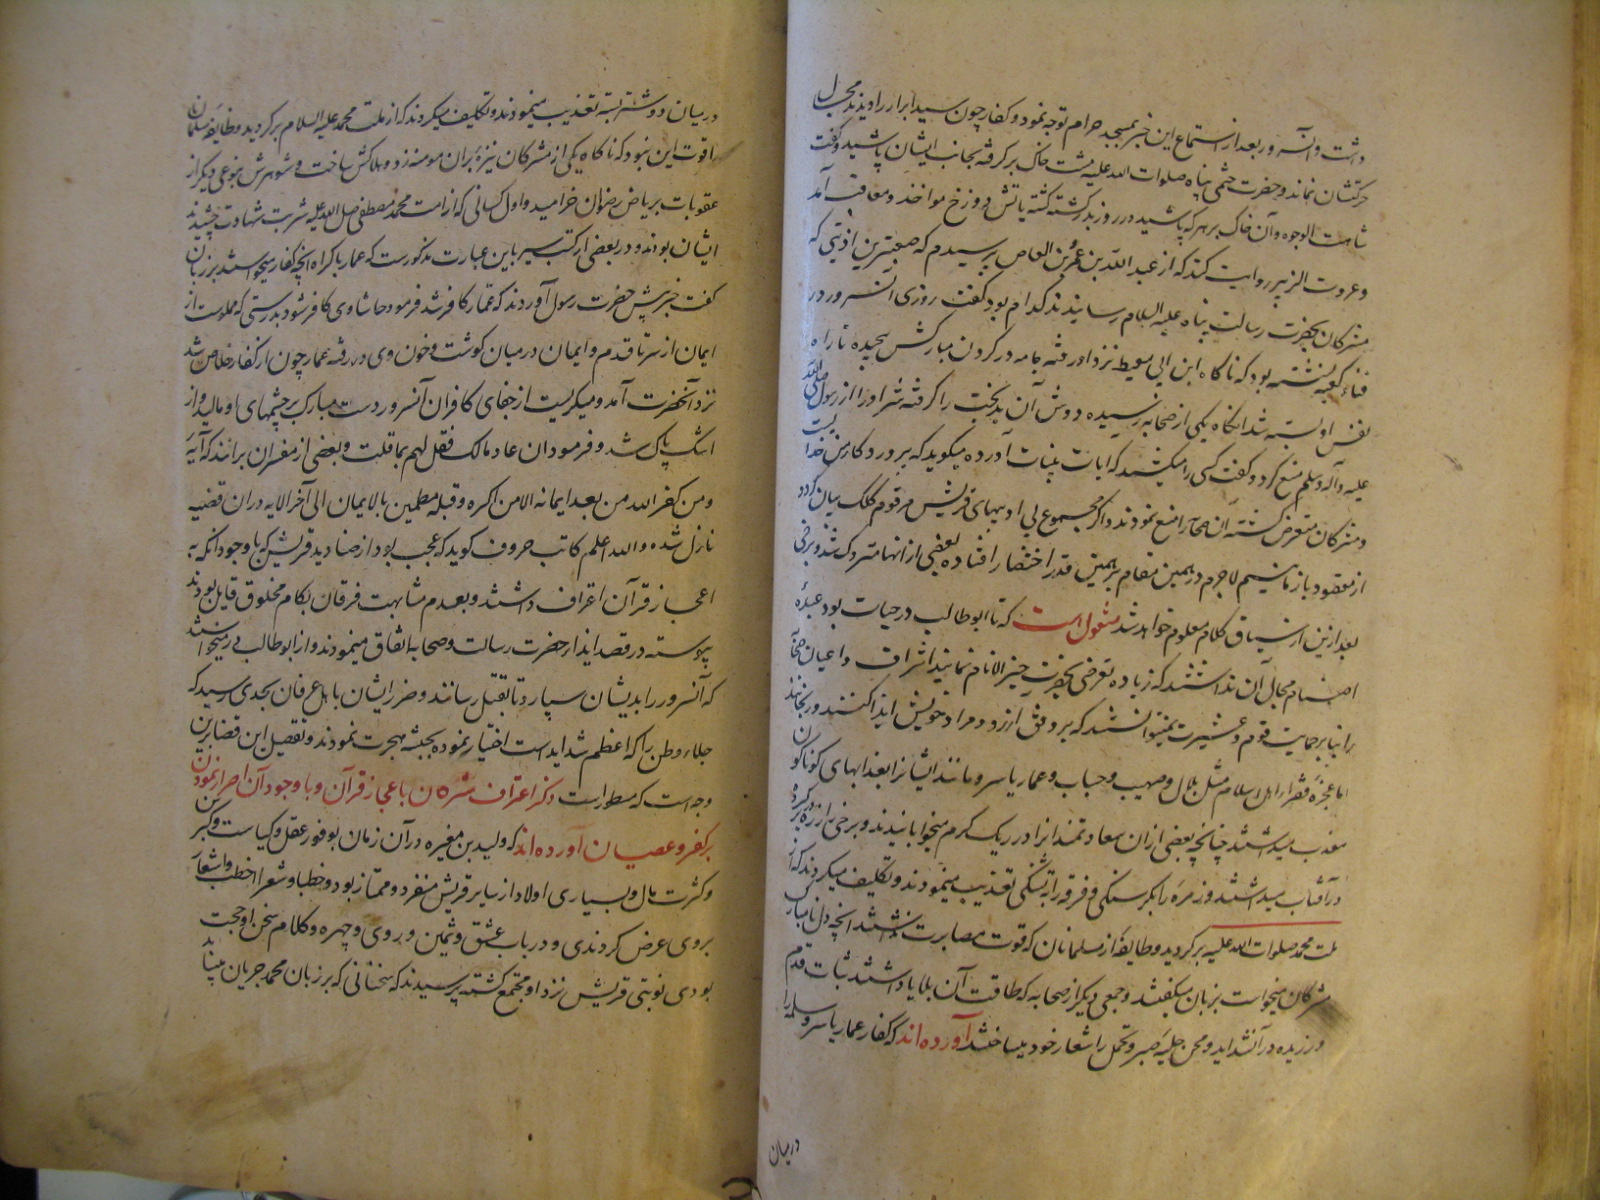 داشت و آنسرور بعد از استماع این خبر بمسجد حرام توجه نمود و کفار چون سید ابرار را دیدند مجال
حرکتشان نماند و حضرت ختمی پناه صلوات الله علیه مشت خاک برگرفته بجانب ایشان پاشید و گفت
شاهت الوجوه و آن خاک بر هر که پاشید در روز بدر کشته گشته بآتش دوزخ مواخذ و معاقب آمد
و عروت الزبیر روایت کند که از عبد الله بن عمرو بن العاص پرسیدم که صعبترین اذیتی که
مشرکان بحضرت رسالت پناه علیه السلام رسانیدند کدام بود گفت روزی آنسرور در
فناء کعبه نشسته بود که ناکاه ابن ابی معیط نزد او رفته جامه در کردن مبارکش پیچیده تا راه
نفس او بسته شد آنکاه یکی از صحابه رسیده دوش آن بدبخت را کرفته شر او را از رسول صلی الله
علیه و آله و سلم منع کرد و گفت کسی را میکشید که ایات بینات آورده میکوید که پرورد کار من خداست
و مشرکان متعرض کشته آن صحابه را منع نمودند و اکر مجموع بی ادبیهای قریش مرقوم کلک بیان کردد
از مقصود باز مانیم لاجرم در همین مقام بر همین قدر اختصار افتاده بعضی از انها متروک شد و برخی
بعد ازین از سیاق کلام معلوم خواهد شد منقول است که تا ابو طالب در حیات بود عبدهٔ
اصنام مجال آن نداشتند که زیاده تعرض بحضرت خیر الانام نمایند اشراف و اعیان صحابه
را نیز بنابر حمایت قوم و عشیرت نمیتوانستند که بر وفق آرزو و مراد خویش ایذا کنند و برنجانند
اما عجزه و فقراء اهل اسلام مثل بلال و صهیب و خباب و عمار یاسر و مانند ایشانرا بعذابهای کوناکون
معذب میداشتند چنانچه بعضی از ان سعادتمندانرا در ریک کرم میخوابانیدند و برخی را زره پوشیده
در آفتاب میداشتند و زمره را بکرسنکی و فرقه را بتشنکی تعذیب مینمودند و تکلیف میکردند که از
ملت محمد صلوات الله علیه برکردید و طایفهٔ از مسلمانان که قوت مصابرت نداشتند انچه دل نامبارک
مشرکان میخواست بزبان میکفتند و جمعی دیکر از صحابه که طاقت آن بلایا داشتند ثبات قدم
ورزیده در آن شداید و محن حلیهٔ صبر و تحمل را شعار خود میساختند آورده اند که کفار عمار یاسر و سمیه را
درمیان
درمیان دو شتر بسته تعذیب مینمودند و تکلیف میکردند که از ملت محمد علیه السلام برکردید و طایفه مسلمان
را قوت این نبود که ناکاه یکی از مشرکان نیزهٔ بران مومنه زد و هلاکش ساخت و شوهرش بنوعی دیکر از
عقوبات بریاض رضوان خرامید و اول کسانی که از امت محمد مصطفی صلی الله علیه شربت شهادت چشیدند
ایشان بودند و در بعضی از کتب سیر باین عبارت مذکورست که عمار باکراه انچه کفار میخواستند بر زبان
گفت خبر پیش حضرت رسول آوردند که عمار کافر شد فرمود حاشا وی کافر شود بدرستی که مملوست از
ایمان از سر تا قدم و ایمان در میان کوشت و خون وی در رفته عمار چون از کفار خلاص شد
نزد آنحضرت آمد و میکریست از جفای کافران آنسرور دست مبارک بر چشمهای او مالید و از
اشک پاک شد و فرمود ان عادوا لک فقل لهم بما قلت و بعضی از مفسران برانند که آیهٔ
و من کفر الله من بعد ایمانه الا من اکره و قبله مطمین بالایمان الی آخر الایه در ان قضیه
نازل شده و الله اعلم کاتب حروف کوید که عجب بود از صنادید قریش که با وجود انکه به
اعجاز قرآن اعتراف داشتند و بعدم مشابهت فرقان بکلام مخلوق قایل بودند
پیوسته در قصد ایذاء حضرت رسالت و صحابه اتفاق مینمودند و از ابو طالب درمیخواستند
که آنسرور را بدیشان سپارد تا بقتل رسانند و ضرر ایشان باهل عرفان بحدی رسید که
جلاء وطن را که اعظم شدایدست اختیار نموده بحبشه هجرت نمودند و تفصیل این قضا برین
وجه است که مسطور است ذکر اعتراف مشرکان باعجاز قرآن و با وجود آن اصرار نمودن
بر کفر و عصیان آورده اند که ولید بن مغیره در آن زمان بوفور عقل و کیاست و کبر سن
و کثرت مال و بسیاری اولاد از سایر قریش منفرد و ممتاز بود و خطبا و شعرا خطب و اشعار
بروی عرض کردندی و در باب غث و ثمین و روی و چهره و کلام سخن او حجت
بودی نوبتی قریش نزد او مجتمع کشته پرسیدند که سخنانی که بر زبان محمد جریان مییابد